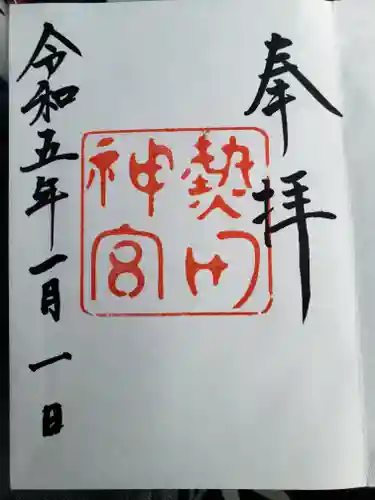 奉拝
熱田
神宮
令和五年一月一日